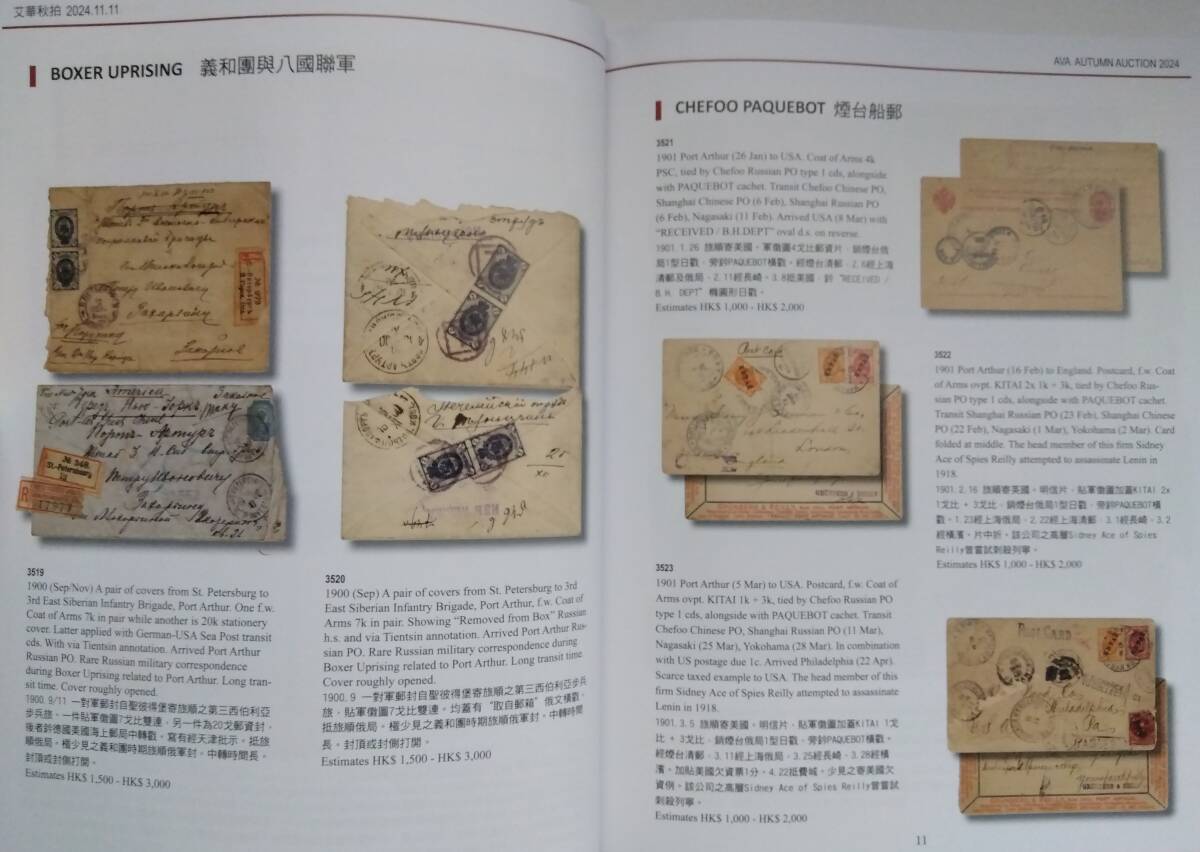 艾華秋拍 2024.11.11
BOXER UPRISING 義和團與八國聯軍
3519
1900 (Sep/Nov) A pair of covers from St. Petersburg to
3rd East Siberian Infantry Brigade, Port Arthur. One f.w.
Coat of Arms 7k in pair while another is 20k stationery
cover. Latter applied with German-USA Sea Post transit
cds. With via Tientsin annotation. Arrived Port Arthur
Russian PO. Rare Russian military correspondence
during Boxer Uprising related to Port Arthur. Long tran-
sit time. Cover roughly opened.
1900.9/11 一對軍郵封自聖彼得堡寄旅順之第三西伯利亞
步兵旅，一件貼軍徽圖7戈比雙連，另一件為20戈郵資封，
後者銷德國美國海上郵局中轉戳，寫有經天津批示，抵旅
順俄局，極少見之義和團時期旅順俄軍封，中轉時間長，
封頂或封側打開。
Estimates HK$ 1,500 - HK$ 3,000
3520
1900 (Sep) A pair of covers from St. Petersburg to 3rd
East Siberian Infantry Brigade, Port Arthur, f.w. Coat of
Arms 7k in pair. Showing “Removed from Box” Russian
h.s. and via Tientsin annotation. Arrived Port Arthur Rus-
sian PO. Rare Russian military correspondence during
Boxer Uprising related to Port Arthur. Long transit time.
Cover roughly opened.
1900.9 一對軍郵封自聖彼得堡寄旅順之第三西伯利亞步兵
旅，貼軍徽圖7戈比雙連，均蓋有“取自郵箱”俄文橫戳，
抵旅順俄局，極少見之義和團時期旅順俄軍封，中轉時間
長，封頂或封側打開。
Estimates HK$ 1,500 - HK$ 3,000
AVA AUTUMN AUCTION 2024
CHEFOO PAQUEBOT 煙台船郵
3521
1901 Port Arthur (26 Jan) to USA. Coat of Arms 4k
PSC, tied by Chefoo Russian PO type 1 cds, alongside
with PAQUEBOT cachet. Transit Chefoo Chinese PO,
Shanghai Chinese PO (6 Feb), Shanghai Russian PO
(6 Feb), Nagasaki (11 Feb). Arrived USA (8 Mar) with
“RECEIVED / B.H.DEPT” oval d.s. on reverse.
1901.1.26 旅順寄美國，軍徽圖4戈比郵資片，銷煙台俄
局1型日戳，旁鈐PAQUEBOT橫戳，經煙台清郵，2.6經上海
清郵及俄局，2.11經長崎，3.8抵美國，鈐“RECEIVED /
B.H. DEPT”橢圓形日戳。
Estimates HK$ 1,000 - HK$ 2,000
3522
1901 Port Arthur (16 Feb) to England. Postcard, f.w. Coat
of Arms ovpt. KITAI 2x 1k + 3k, tied by Chefoo Rus-
sian PO type 1 cds, alongside with PAQUEBOT cachet.
Transit Shanghai Russian PO (23 Feb), Shanghai Chinese
PO (22 Feb), Nagasaki (1 Mar), Yokohama (2 Mar). Card
folded at middle. The head member of this firm Sidney
Ace of Spies Reilly attempted to assassinate Lenin in
1918.
1901.2.16 旅順寄英國，明信片，貼軍徽圖加蓋KITAI 2x
1戈比 + 3戈比，銷煙台俄局1型日戳，旁鈐PAQUEBOT橫
戳，1.23經上海俄局，2.22經上海清郵，3.1經長崎，3.2
經橫濱，片中折。該公司之高層Sidney Ace of Spies
Reilly曾嘗試刺殺列寧。
Estimates HK$ 1,000 - HK$ 2,000
3523
1901 Port Arthur (5 Mar) to USA. Postcard, f.w. Coat of
Arms ovpt. KITAI 1k + 3k, tied by Chefoo Russian PO
type 1 cds, alongside with PAQUEBOT cachet. Transit
Chefoo Chinese PO, Shanghai Russian PO (11 Mar),
Nagasaki (25 Mar), Yokohama (28 Mar). In combination
with US postage due 1c. Arrived Philadelphia (22 Apr).
Scarce taxed example to USA. The head member of this
firm Sidney Ace of Spies Reilly attempted to assassinate
Lenin in 1918.
1901.3.5 旅順寄美國，明信片，貼軍徽圖加蓋KITAI 1戈
比 + 3戈比，銷煙台俄局1型日戳，旁鈐PAQUEBOT橫戳，
經煙台清郵，3.11經上海俄局，3.25經長崎，3.28經橫
濱，加貼美國欠資票1分，4.22抵費城，少見之寄美國欠
資例。該公司之高層Sidney Ace of Spies Reilly曾嘗試
刺殺列寧。
Estimates HK$ 1,000 - HK$ 2,000
11
America
№ 348.
St.-Petersbourg
17977
№ 979
Post Card
London
POST CARD
Philadelphia
Pa